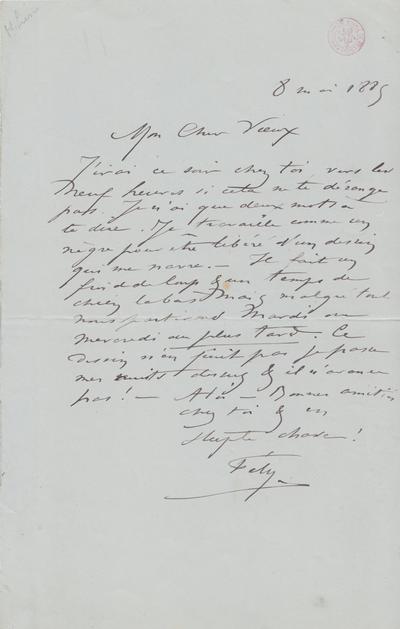 8 mai 1885
Mon Cher Vieux
J'irai ce soir chez toi vers les
neuf heures si cela ne te dérange
pas. Je n'ai que deux mots à
te dire. Je travaille comme un
nègre pour être libéré d'un dessin
qui me navre. – Il fait un
froid de loup & un temps de
chien là bas. Mais malgré tout
nous partirons Mardi ou
Mercredi au plus tard. Ce
dessin n'en finit pas je passe
mes nuits dessus & il n'avance
pas! – A toi – Bonnes amitiés
chez toi & en
chose!
Fély